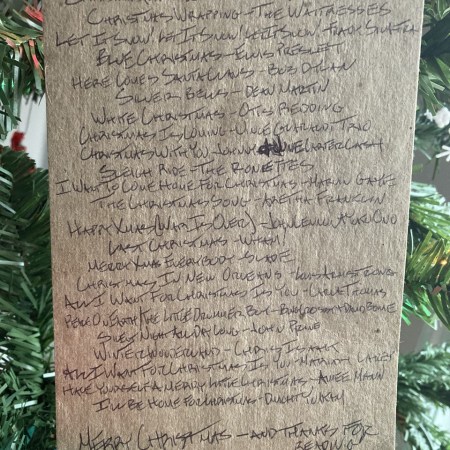 Christmas Wrapping - The Waitresses
Let It Snow Let It Snow Let It Snow - Frank Sinatra
Blue Christmas - Elvis Presley
Here Comes Santa Claus - Bob Dylan
Silver Bells - Dean Martin
White Christmas - Otis Redding
Christmas Is Coming - Vince Guaraldi Trio
Christmas With You - Johnny June Carter Cash
Sleigh Ride - The Ronettes
I Want To Come Home For Christmas - Marvin Gaye
The Christmas Song - Aretha Franklin
Happy Xmas (War Is Over) - John Lennon Yoko Ono
Last Christmas - Wham
Merry Xmas Everybody Slade
Christmas In New Orleans - Louis Armstrong
All I Want For Christmas Is You - Carla Thomas
Peace On Earth The Little Drummer Boy - Bing Crosby + David Bowie
Silent Night All Day Long - John Prine
Winter Wonderland - Chris Isaak
All I Want For Christmas Is You - Mariah Carey
Have Yourself A Merry Little Christmas - Aimee Mann
I'll Be Home For Christmas - Dwight Yoakam
Merry Christmas - and thanks for
reading